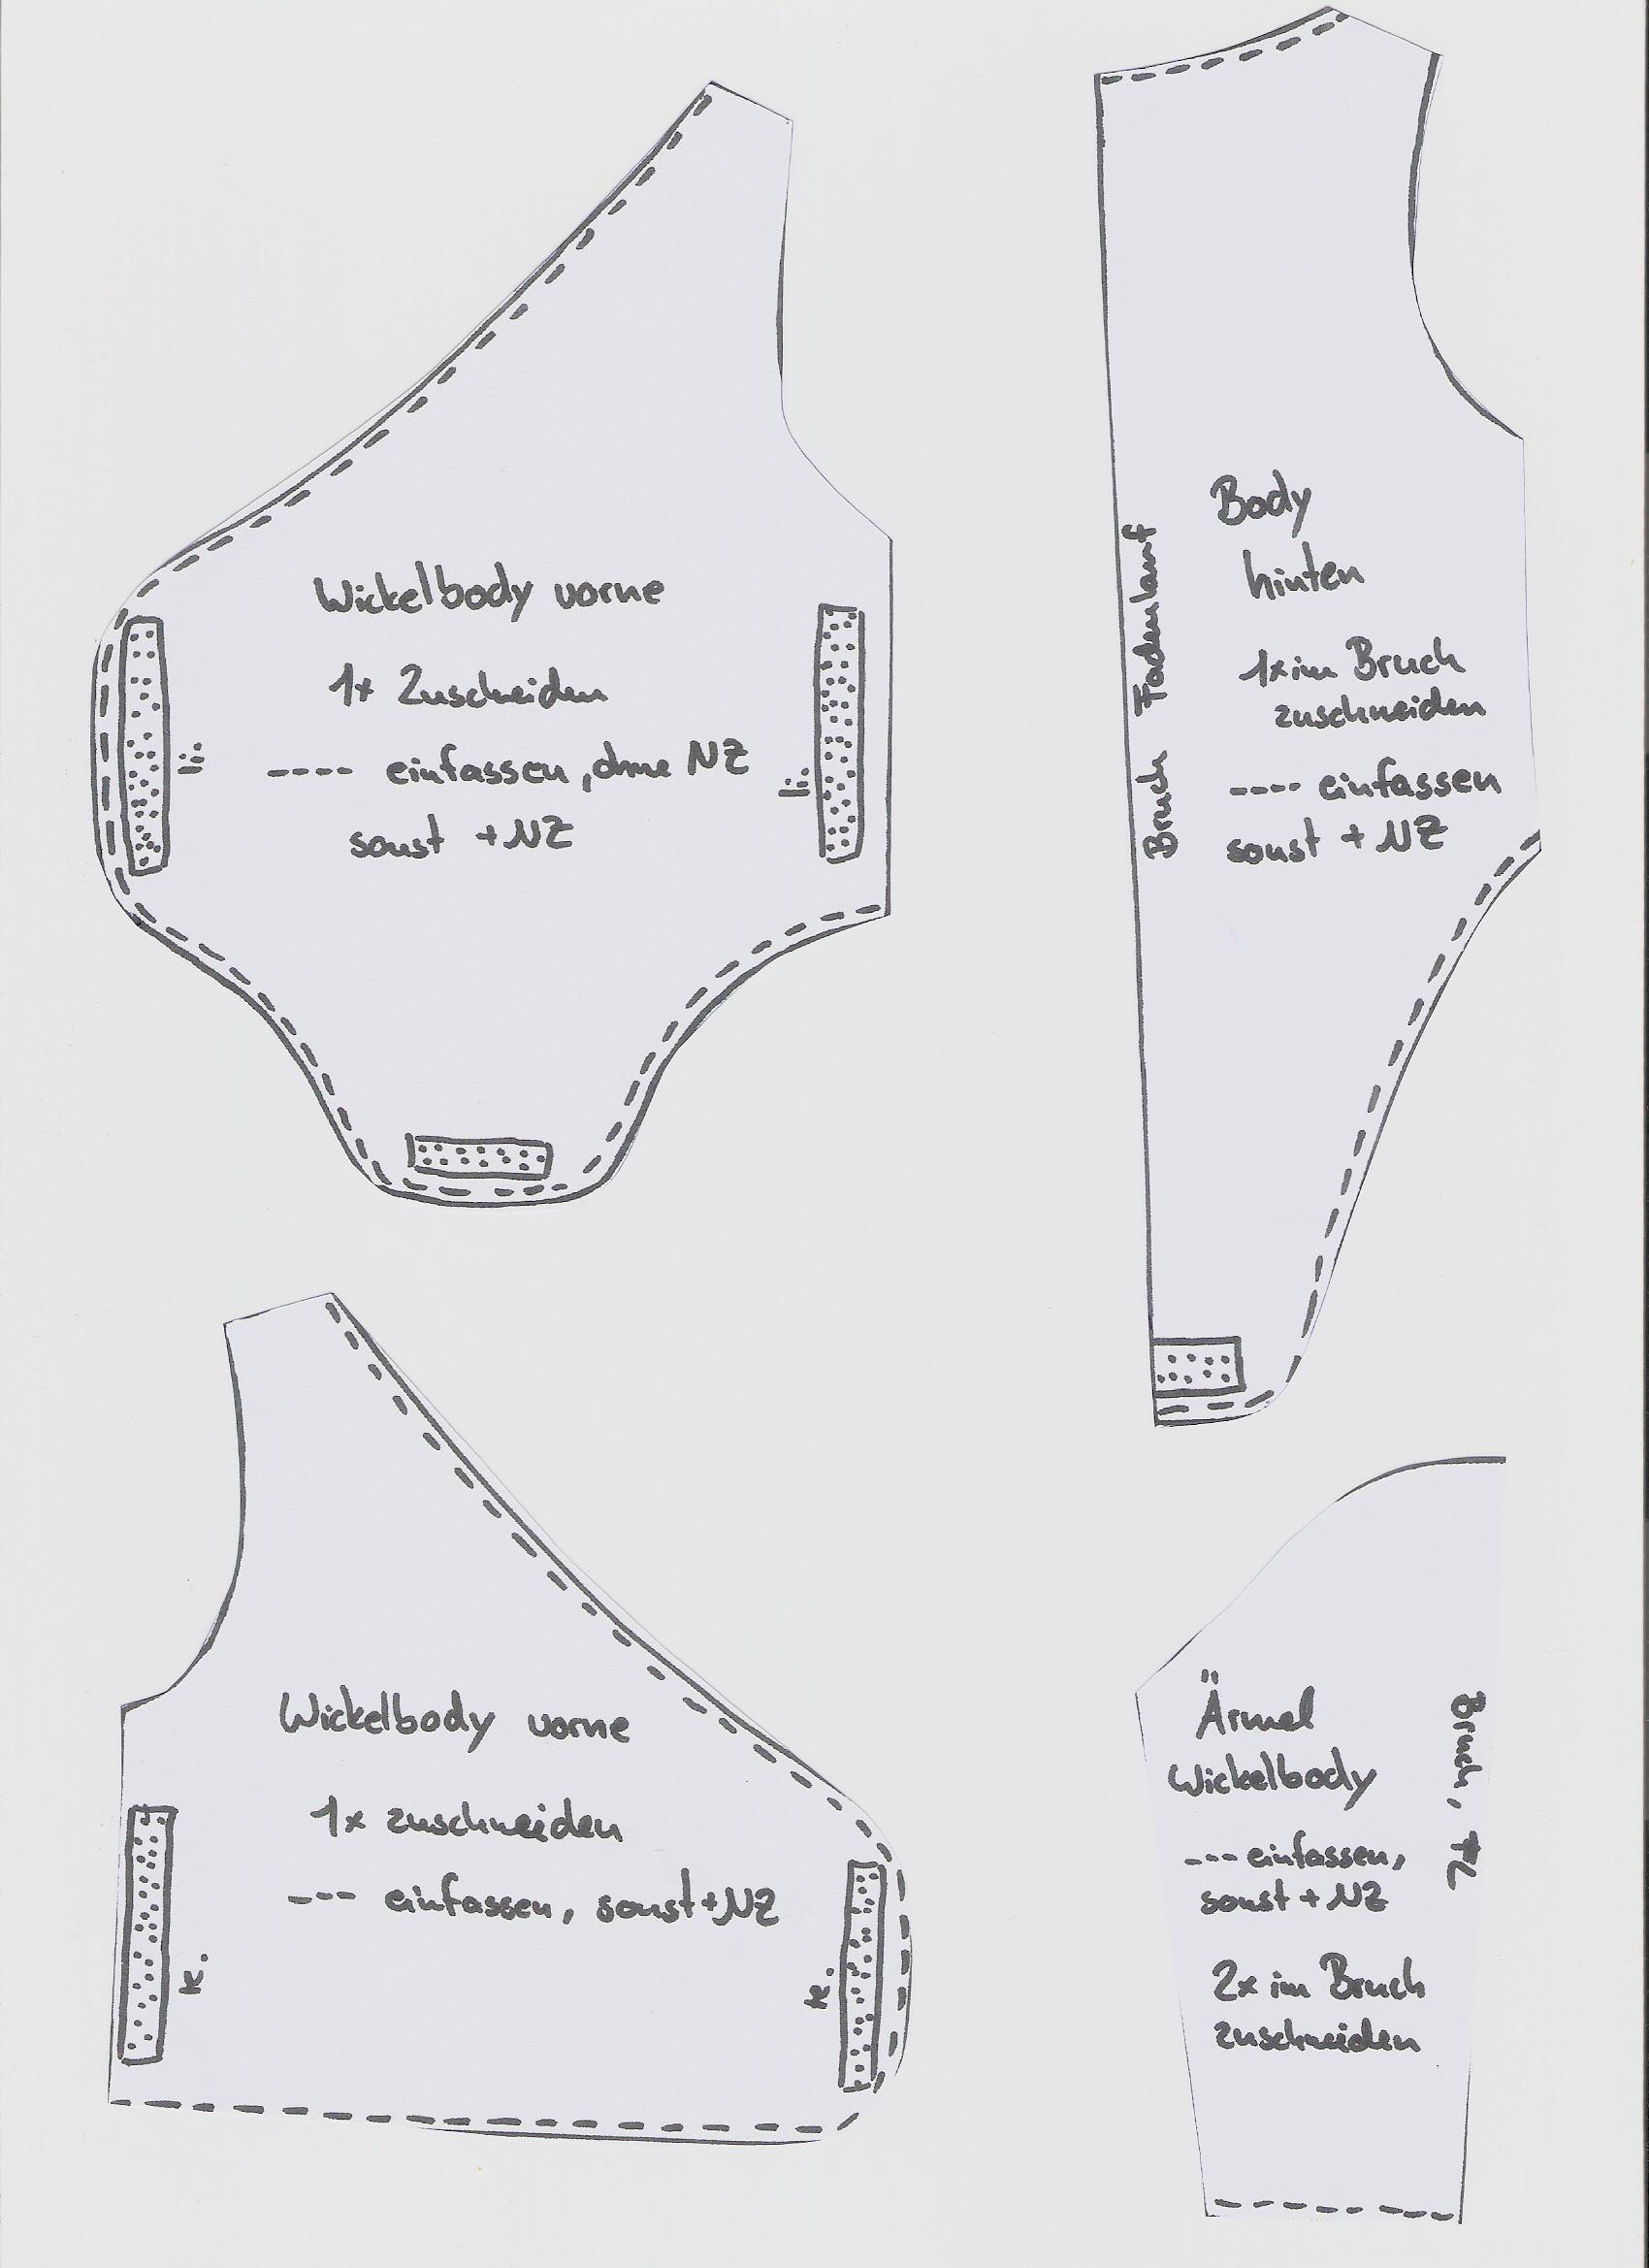 Wickelbody vorne
1x Zuschneiden
---- einfassen, ohne NZ
sonst + NZ
li.
li.
Body
hinten
1x im Bruch
zuschneiden
---- einfassen
sonst + NZ
Bruch Fadenlauf
Wickelbody vorne
1x zuschneiden
--- einfassen, sonst + NZ
re.
re.
Ärmel
Wickelbody
--- einfassen,
sonst + NZ
2x im Bruch
zuschneiden
Bruch, FL